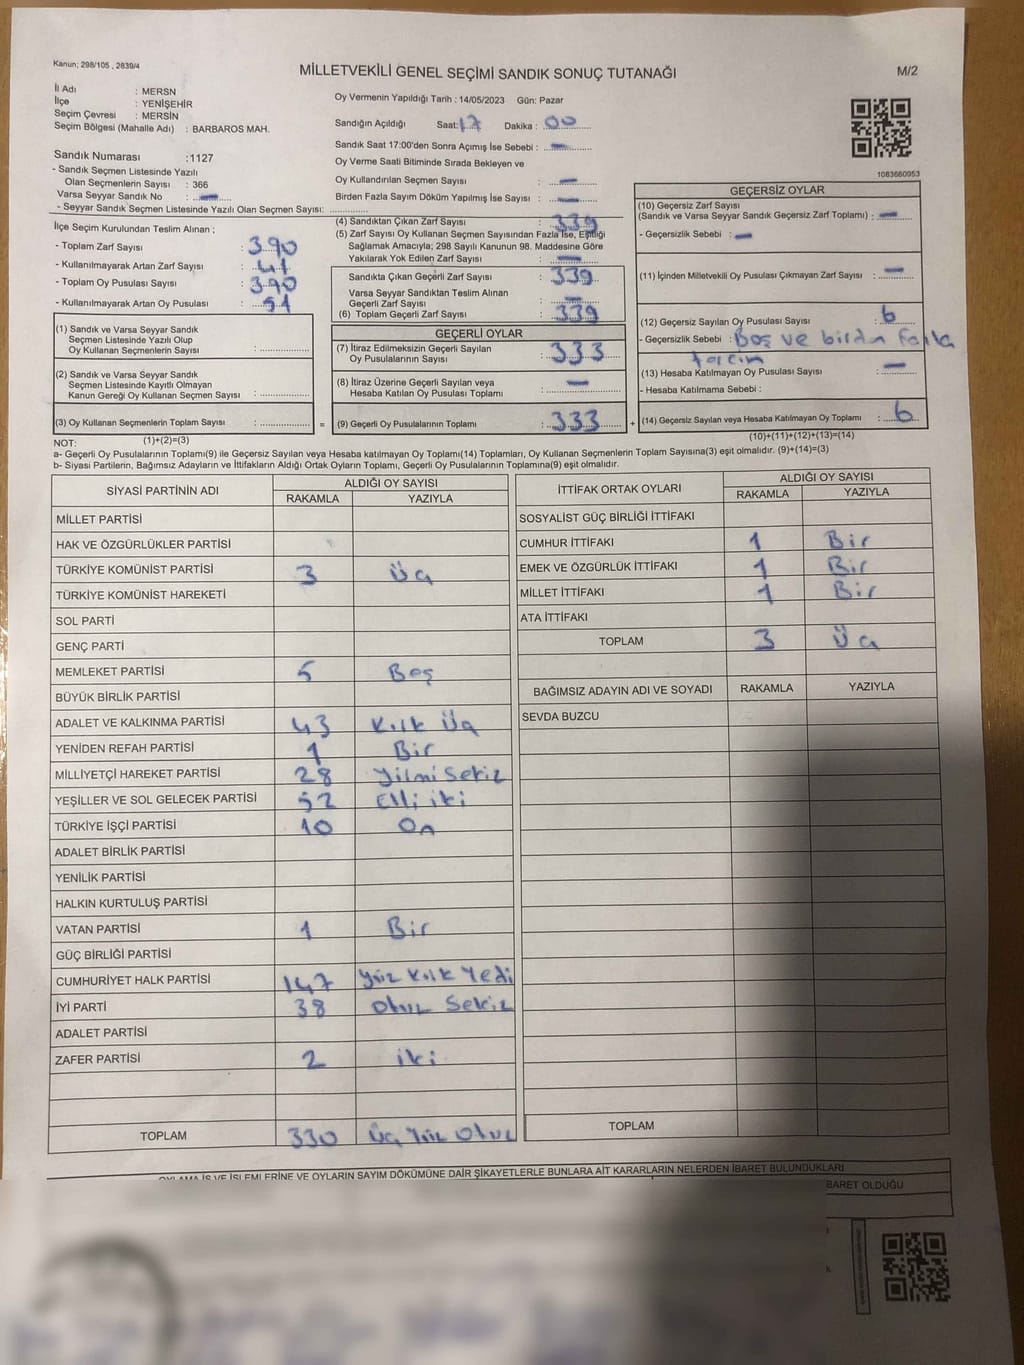 Kanun; 298/105 , 2839/4
MİLLETVEKİLİ GENEL SEÇİMİ SANDIK SONUÇ TUTANAĞI
M/2
İl Adı : MERSN
İlçe : YENİŞEHİR
Seçim Çevresi : MERSİN
Seçim Bölgesi (Mahalle Adı) : BARBAROS MAH.
Oy Vermenin Yapıldığı Tarih : 14/05/2023 Gün: Pazar
Sandığın Açıldığı Saat: 17 Dakika : 00
Sandık Saat 17:00'den Sonra Açımış İse Sebebi : —
Oy Verme Saati Bitiminde Sırada Bekleyen ve
Oy Kullandırılan Seçmen Sayısı : —
Birden Fazla Sayım Döküm Yapılmış İse Sayısı : —
1083660953
Sandık Numarası :1127
- Sandık Seçmen Listesinde Yazılı
Olan Seçmenlerin Sayısı : 366
Varsa Seyyar Sandık No : —
- Seyyar Sandık Seçmen Listesinde Yazılı Olan Seçmen Sayısı:
İlçe Seçim Kurulundan Teslim Alınan ;
- Toplam Zarf Sayısı : 390
- Kullanılmayarak Artan Zarf Sayısı :
- Toplam Oy Pusulası Sayısı : 390
- Kullanılmayarak Artan Oy Pusulası : 51
(1) Sandık ve Varsa Seyyar Sandık
Seçmen Listesinde Yazılı Olup
Oy Kullanan Seçmenlerin Sayısı :
(2) Sandık ve Varsa Seyyar Sandık
Seçmen Listesinde Kayıtlı Olmayan
Kanun Gereği Oy Kullanan Seçmen Sayısı :
(3) Oy Kullanan Seçmenlerin Toplam Sayısı : =
(1)+(2)=(3)
(4) Sandıktan Çıkan Zarf Sayısı : 339
(5) Zarf Sayısı Oy Kullanan Seçmen Sayısından Fazla İse, Eşitliği
Sağlamak Amacıyla; 298 Sayılı Kanunun 98. Maddesine Göre
Yakılarak Yok Edilen Zarf Sayısı : —
Sandıkta Çıkan Geçerli Zarf Sayısı : 339
Varsa Seyyar Sandıktan Teslim Alınan
Geçerli Zarf Sayısı : —
(6) Toplam Geçerli Zarf Sayısı : 339
GEÇERLİ OYLAR
(7) İtiraz Edilmeksizin Geçerli Sayılan
Oy Pusulalarının Sayısı : 333
(8) İtiraz Üzerine Geçerli Sayılan veya
Hesaba Katılan Oy Pusulası Toplamı : —
(9) Geçerli Oy Pusulalarının Toplamı : 333 +
GEÇERSİZ OYLAR
(10) Geçersiz Zarf Sayısı
(Sandık ve Varsa Seyyar Sandık Geçersiz Zarf Toplamı) : —
- Geçersizlik Sebebi : —
(11) İçinden Milletvekili Oy Pusulası Çıkmayan Zarf Sayısı : —
(12) Geçersiz Sayılan Oy Pusulası Sayısı : 6
- Geçersizlik Sebebi : Boş ve birden fazla
tercin
(13) Hesaba Katılmayan Oy Pusulası Sayısı : —
- Hesaba Katılmama Sebebi :
(14) Geçersiz Sayılan veya Hesaba Katılmayan Oy Toplamı : 6
(10)+(11)+(12)+(13)=(14)
NOT:
a- Geçerli Oy Pusulalarının Toplamı(9) ile Geçersiz Sayılan veya Hesaba katılmayan Oy Toplamı(14) Toplamları, Oy Kullanan Seçmenlerin Toplam Sayısına(3) eşit olmalıdır. (9)+(14)=(3)
b- Siyasi Partilerin, Bağımsız Adayların ve İttifakların Aldığı Ortak Oyların Toplamı, Geçerli Oy Pusulalarının Toplamına(9) eşit olmalıdır.
SİYASİ PARTİNİN ADI ALDIĞI OY SAYISI
RAKAMLA YAZIYLA
MİLLET PARTİSİ
HAK VE ÖZGÜRLÜKLER PARTİSİ
TÜRKİYE KOMÜNİST PARTİSİ 3 Üç
TÜRKİYE KOMÜNİST HAREKETİ
SOL PARTİ
GENÇ PARTİ
MEMLEKET PARTİSİ 5 Beş
BÜYÜK BİRLİK PARTİSİ
ADALET VE KALKINMA PARTİSİ 43 Kırk Üç
YENİDEN REFAH PARTİSİ 1 Bir
MİLLİYETÇİ HAREKET PARTİSİ 28 Yilmi Sekiz
YEŞİLLER VE SOL GELECEK PARTİSİ 52 Elli iki
TÜRKİYE İŞÇİ PARTİSİ 10 On
ADALET BİRLİK PARTİSİ
YENİLİK PARTİSİ
HALKIN KURTULUŞ PARTİSİ
VATAN PARTİSİ 1 Bir
GÜÇ BİRLİĞİ PARTİSİ
CUMHURİYET HALK PARTİSİ 147 Yüz Kırk Yedi
İYİ PARTİ 38 Otuz Sekiz
ADALET PARTİSİ
ZAFER PARTİSİ 2 iki
TOPLAM 330 Üç Yüz Otuz
İTTİFAK ORTAK OYLARI ALDIĞI OY SAYISI
RAKAMLA YAZIYLA
SOSYALİST GÜÇ BİRLİĞİ İTTİFAKI
CUMHUR İTTİFAKI 1 Bir
EMEK VE ÖZGÜRLÜK İTTİFAKI 1 Bir
MİLLET İTTİFAKI 1 Bir
ATA İTTİFAKI
TOPLAM 3 Üç
BAĞIMSIZ ADAYIN ADI VE SOYADI RAKAMLA YAZIYLA
SEVDA BUZCU
TOPLAM
OYLAMA İŞ VE İŞLEMLERİNE VE OYLARIN SAYIM DÖKÜMÜNE DAİR ŞİKAYETLERLE BUNLARA AİT KARARLARIN NELERDEN İBARET BULUNDUKLARI
BARET OLDUĞU